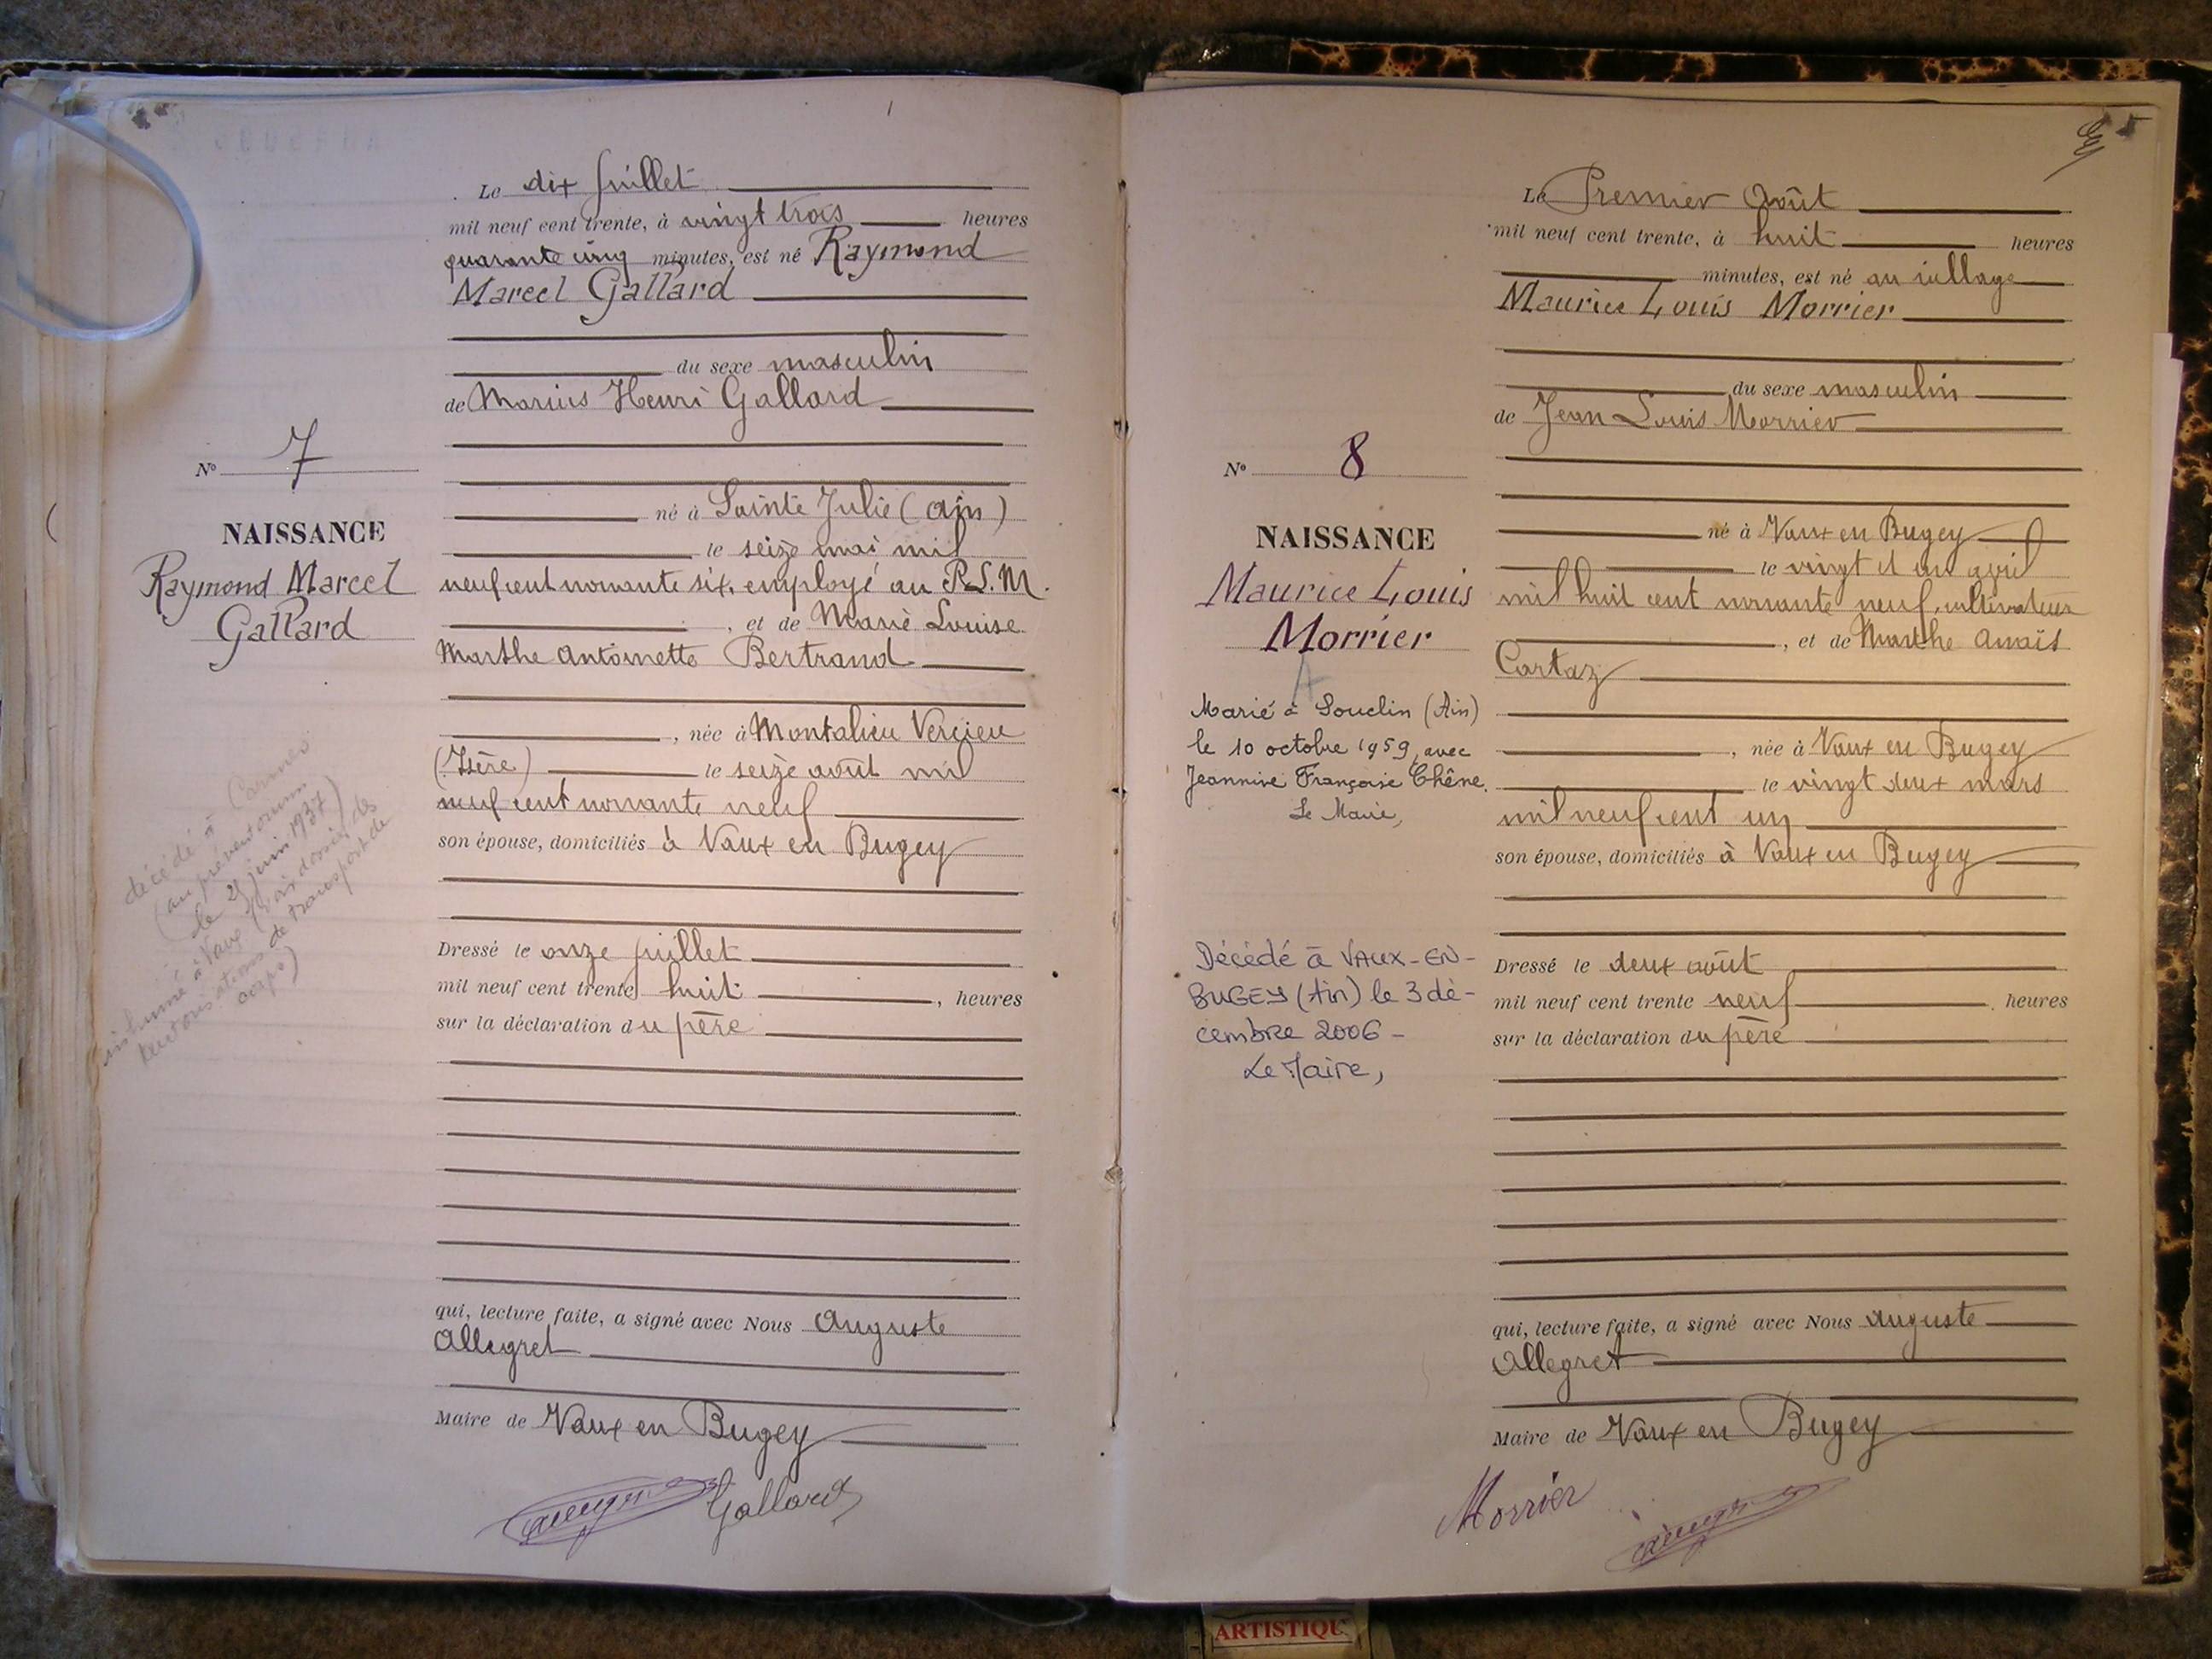 Le dix juillet
mil neuf cent trente, à vingt trois heures
quarante cinq minutes, est né Raymond
Marcel Gallard
du sexe masculin
de Marius Henri Gallard
né à Sainte Julie (Ain)
le seize mai mil
neuf cent nonante six, employé au P.L.M.
, et de Marie Louise
Marthe Antoinette Bertrand
, née à Montalieu Vercieu
(Isère) le seize août mil
neuf cent nonante neuf
son épouse, domiciliés à Vaux en Bugey
Dressé le onze juillet
mil neuf cent trente huit , heures
sur la déclaration du père
qui, lecture faite, a signé avec Nous Auguste
Allegret
Maire de Vaux en Bugey
Gallard
N° 7
NAISSANCE
Raymond Marcel
Gallard
décédé à
(au préventorium
le 21 juin 1937)
inhumé à Vaux (voir dossier des
autorisations de transport de
corps)
Le Premier Août
mil neuf cent trente, à huit heures
minutes, est né au village
Maurice Louis Morrier
du sexe masculin
de Jean Louis Morrier
né à Vaux en Bugey
le vingt et un avril
mil huit cent nonante neuf, cultivateur
, et de Marthe Anaïs
Cartaz
, née à Vaux en Bugey
le vingt deux mars
mil neuf cent un
son épouse, domiciliés à Vaux en Bugey
Dressé le deux août
mil neuf cent trente neuf heures
sur la déclaration du père
qui, lecture faite, a signé avec Nous Auguste
Allegret
Maire de Vaux en Bugey
Morrier
N° 8
NAISSANCE
Maurice Louis
Morrier
Marié à Souclin (Ain)
le 10 octobre 1959, avec
Jeannine Françoise Chêne.
Le Maire,
Décédé à VAUX-EN-
BUGEY (Ain) le 3 dé-
cembre 2006 -
Le Maire,
ARTISTIQU